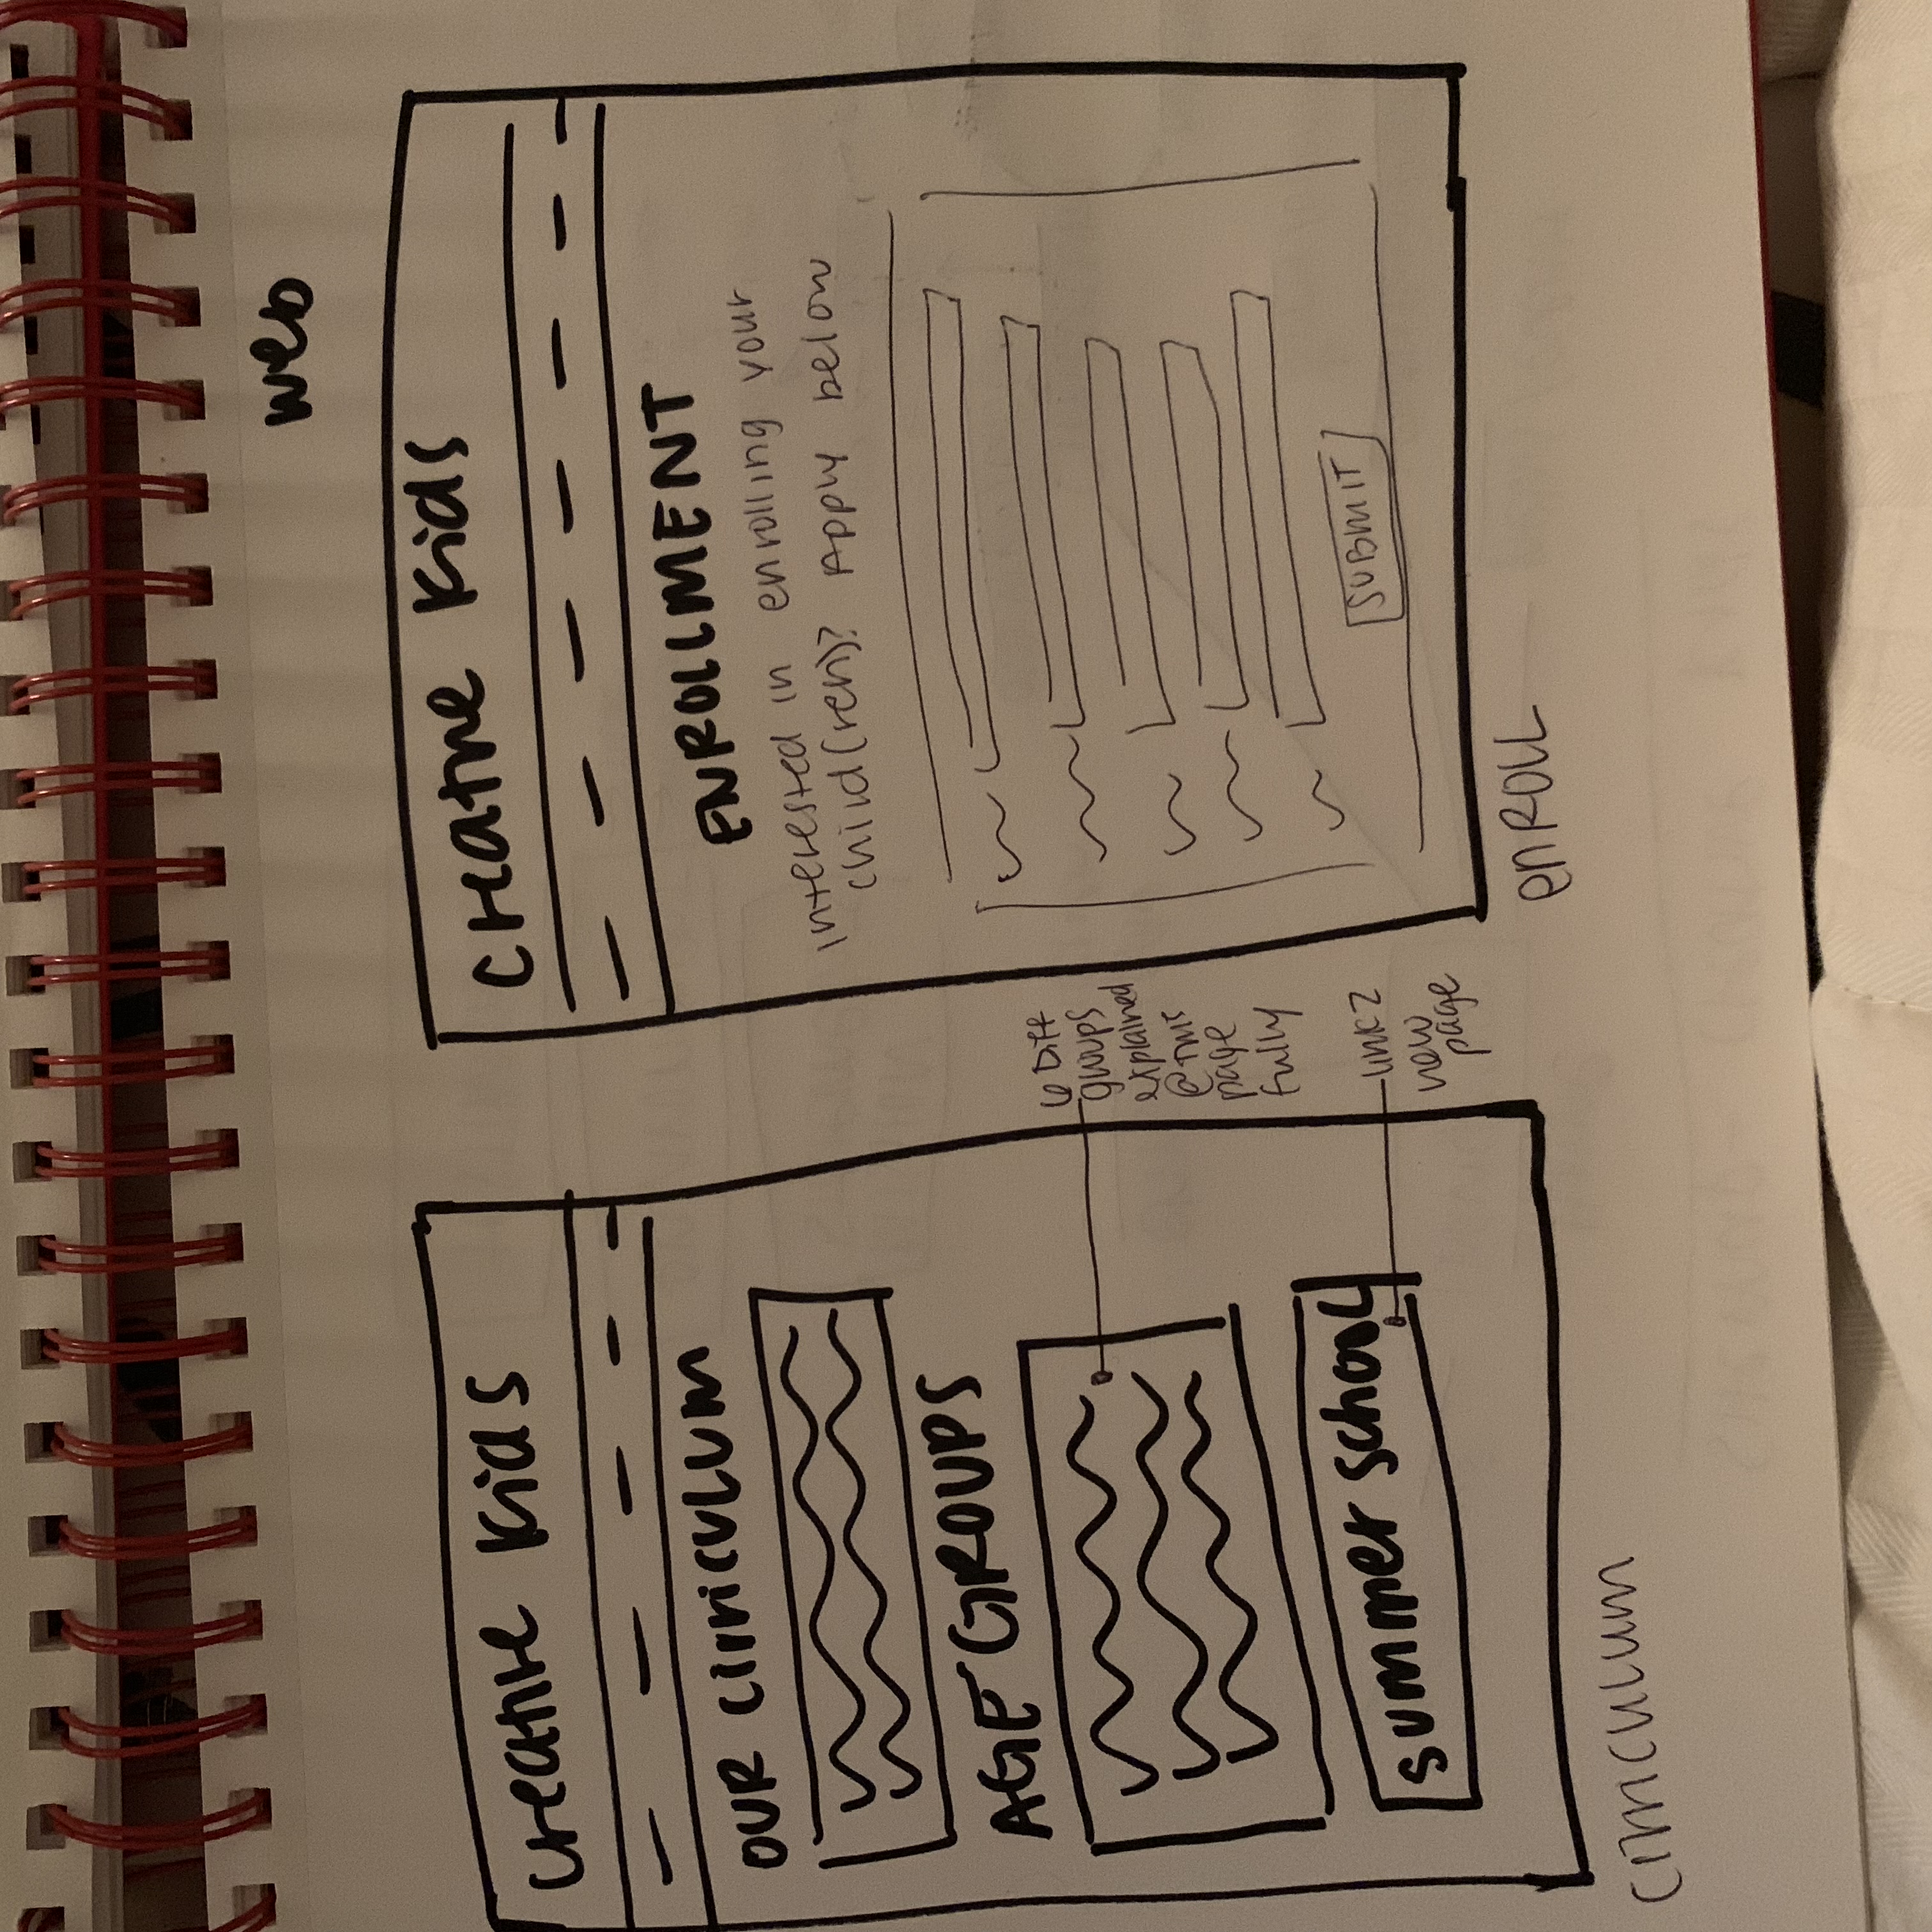 web
creative kids
OUR CIrriCULUM
AGE GROUPS
summer school
6 Diff
groups
explained
@ this
page
fully
link 2
new
page
CIrriCULUM
Creative Kids
ENROLLMENT
interested in enrolling your
child(ren)? Apply below
SUBMIT
enROLL